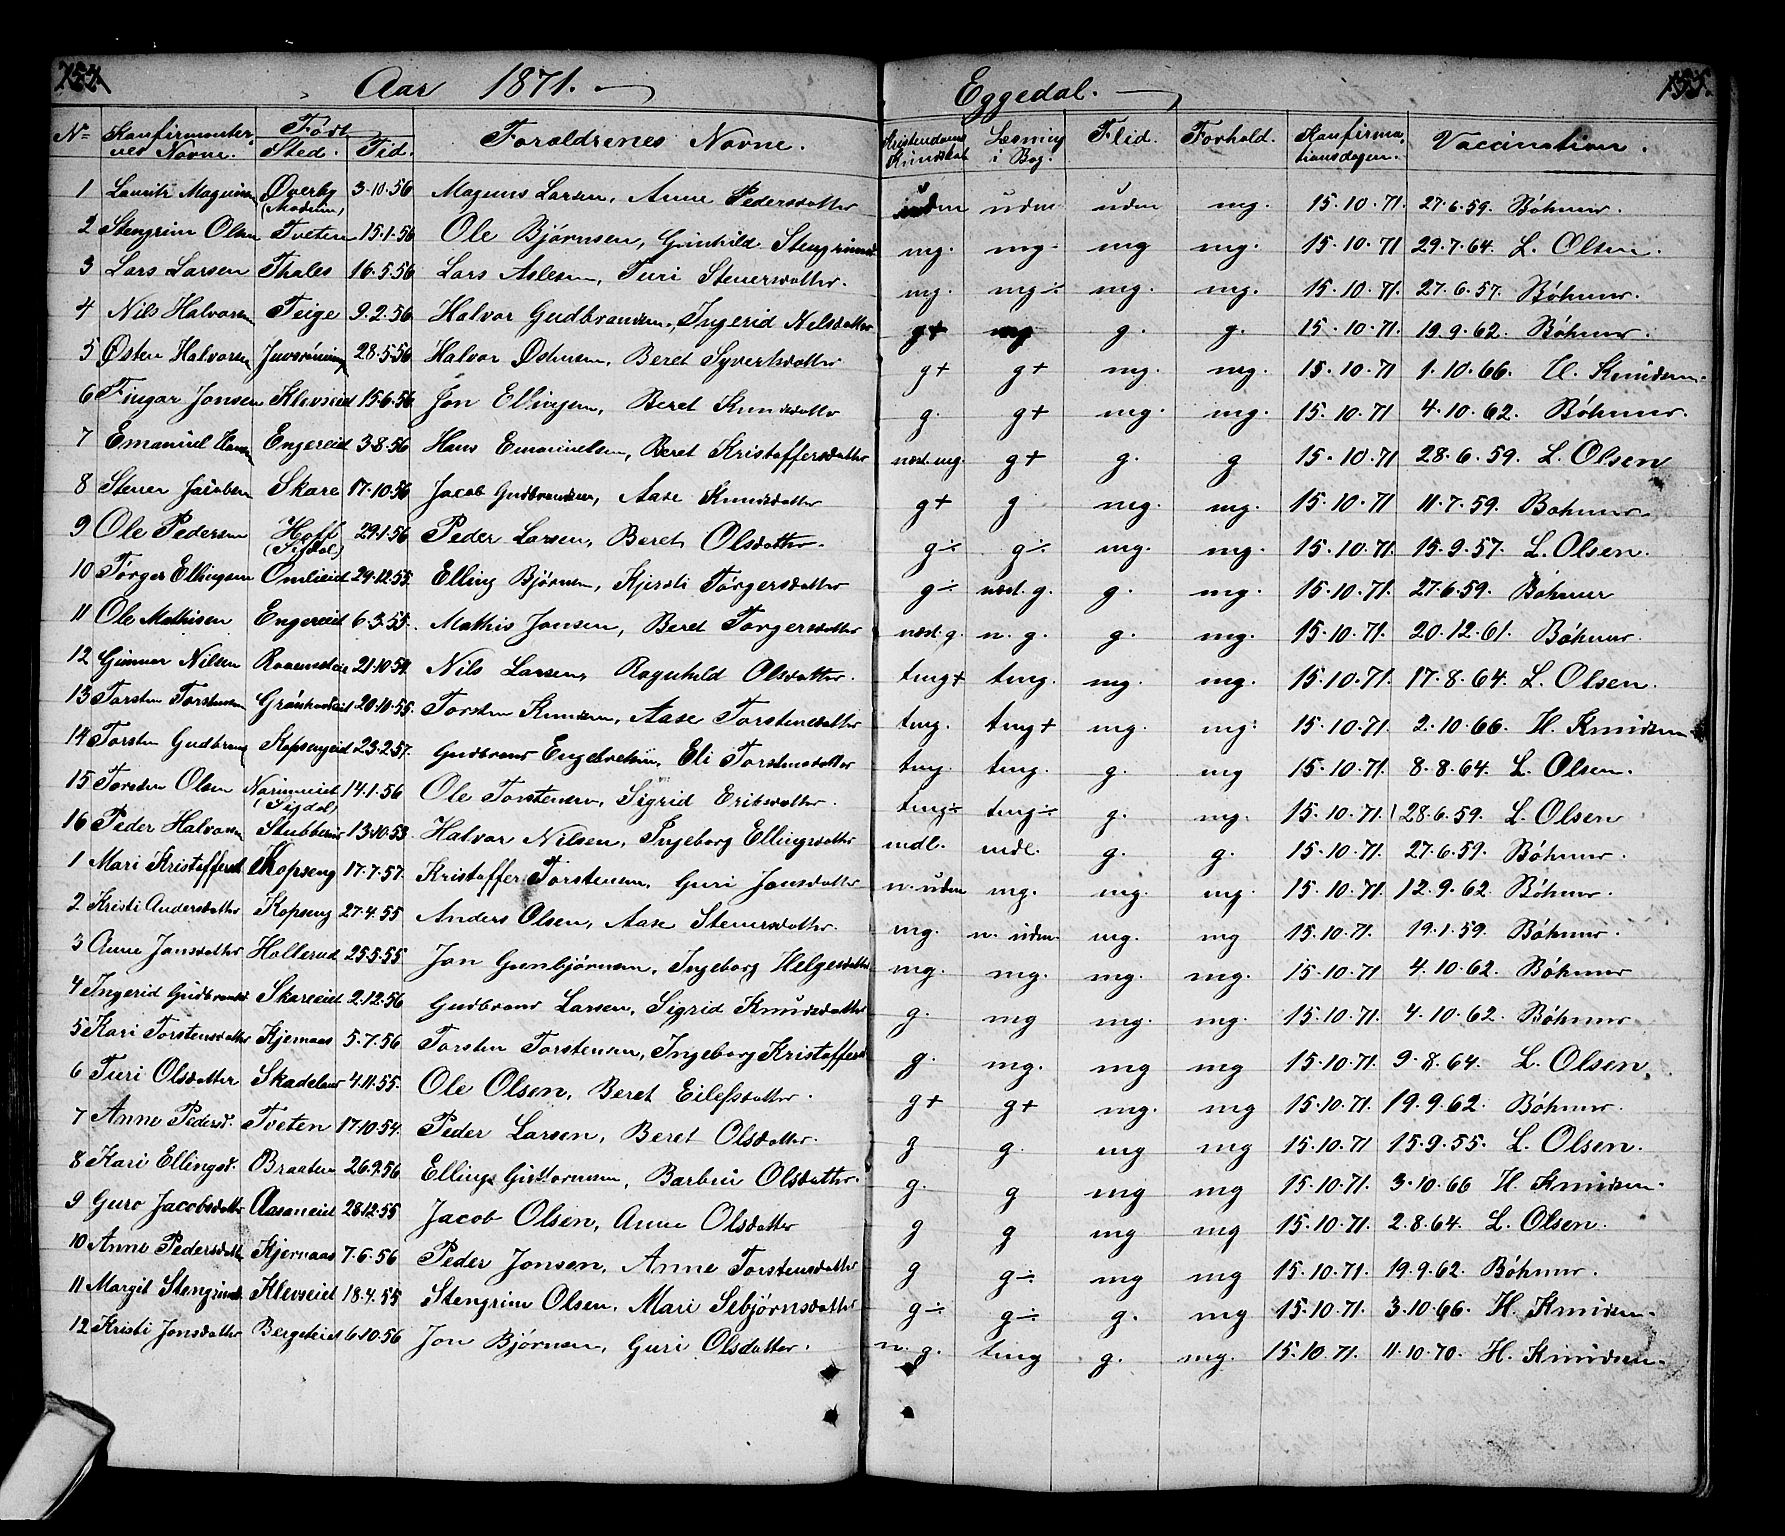 Aar 1871. Eggedal. 155.
No Konfirmanternes Navne. Født Sted. Tid. Forældrenes Navne. Kristendoms Kundskab Læsning i Bog. Flid. Forhold. Konfirmationsdagen. Vaccination.
1 Lauritz Magnusen Øverby (Modum) 3.10.56 Magnus Larsen, Anne Pedersdatter uden uden uden mg. 15.10.71. 27.6.59. Böhmer.
2 Stengrim Olsen Tveten 15.1.56 Ole Bjørnsen, Gunhild Stengrimsd. mg. mg. mg mg. 15.10.71 29.7.64. L. Olsen.
3 Lars Larsen Thales 16.5.56 Lars Aslesen, Turi Steuersdatter. mg. mg÷ mg. mg. 15.10.71. 27.6.57. Böhmer.
4 Nils Halvorsen Teige 9.2.56 Halvor Gudbrandsen, Ingerid Nilsdatter g+ mg g. g. 15.10.71. 19.9.62. Böhmer.
5 Østen Halvorsen 28.5.56 Halvor Østensen, Beret Syvertsdatter g+ g+ mg. mg. 15.10.71 1.10.66. H. Knudsen.
6 Fingar Jonsen Klevseied 15.6.56 Jon Ellingsen, Beret Knudsdatter g. g+ mg. mg. 15.10.71 4.10.62. Böhmer.
7 Emanuel Hansen Engereied 3.8.56 Hans Emanuelsen, Beret Kristoffersdatter næst.mg. g+ g. g 15.10.71 28.6.59. L. Olsen
8 Steuer Jacobsen Skare 17.10.56 Jacob Gudbrandsen, Aase Knudsdatter g+ g mg. mg. 15.10.71 11.7.59. Böhmer.
9 Ole Pedersen Hoff (Sigdal) 29.1.56 Peder Larsen, Beret Olsdatter. g÷ g÷ mg. mg. 15.10.71. 15.9.57. L. Olsen.
10 Tørger Ellingsen Omlieied 29.12.55. Elling Bjørnsen, Kjersti Tørgersdatter g÷ næst.g. g. mg. 15.10.71. 27.6.59. Böhmer
11 Ole Mathisen Engereied 6.3.55. Mathis Jonsen, Beret Torgersdatter næst.g. n.g. g. mg. 15.10.71. 20.12.61. Böhmer.
12 Gunnar Nilsen 21.10.54. Nils Larsen, Ragnhild Olsdatter. tmg+ tmg. mg. mg. 15.10.71. 17.8.64. L. Olsen.
13 Torsten Torstensen 20.10.55. Torsten Knudsen, Aase Torstensdatter tmg. tmg+ mg. mg. 15.10.71. 2.10.66. H. Knudsen
14 Torsten Gudbrands Kopsengeied 23.2.57. Gudbrand Engebretsen, Eli Torstensdatter tmg. tmg. g. mg 15.10.71. 8.8.64. L. Olsen.
15 Torsten Olsen (Sigdal) 14.1.56 Ole Torstensen, Sigrid Eriksdatter. tmg÷ tmg÷ g. mg. 15.10.71. 28.6.59. L. Olsen
16 Peder Halvorsen 13.10.53. Halvor Nilsen, Ingeborg Ellingsdatter mdl. mdl. g. g. 15.10.71. 27.6.59. Böhmer.
1 Mari Kristoffersd. Kopseng 17.7.57. Kristoffer Torstensen, Guri Jonsdatter n. uden mg. mg. mg. 15.10.71. 12.9.62. Böhmer.
2 Kristi Andersdatter Kopseng 27.4.55 Anders Olsen, Aase Steuersdatter. mg. n. uden. mg. mg 15.10.71. 19.1.59. Böhmer.
3 Anne Jonsdatter Hollerud 25.5.55 Jon Gunbjørnsen, Ingeborg Helgesdatter mg. mg. mg. mg. 15.10.71 4.10.62. Böhmer
4 Ingerid Gudbrandsd Skareeied 2.12.56 Gudbrand Larsen, Sigrid Knudsdatter g. mg mg. mg. 15.10.71. 4.10.62. Böhmer
5 Kari Torstensdatter Kjernaas 5.7.56 Torsten Torstensen, Ingeborg Kristoffersd g. mg. mg mg 15.10.71. 9.8.64. L. Olsen.
6 Turi Olsdatter 4.11.55. Ole Olsen, Beret Eilefsdatter. g+ g+ mg. mg 15.10.71. 19.9.62. Böhmer.
7 Anne Pedersd. Tveten 17.10.54. Peder Larsen, Beret Olsdatter. g g. mg mg 15.10.71 15.9.55. L. Olsen.
8 Kari Ellingsd. Braaten 26.9.56 Elling Guttormsen, Barbru Olsdatter. g. g mg mg 15.10.71. 3.10.66 H. Knudsen.
9 Guro Jacobsdatter Aasaneied 28.12.55 Jacob Olsen, Anne Olsdatter g g mg mg 15.10.71. 2.8.64. L. Olsen.
10 Anne Pedersdatt Kjernaas 7.6.56 Peder Jonsen, Anne Torstensdatter g g÷ mg mg 15.10.71. 19.9.62. Böhmer.
11 Margit Stengrimsd Klevseied 18.4.55 Stengrim Olsen, Mari Sebjørnsdatter g÷ g÷ g. mg 15.10.71. 3.10.66. H. Knudsen.
12 Kristi Jonsdatter Bergeteied 6.10.56 Jon Bjørnsen, Guri Olsdatter. n.g. tmg g. mg. 15.10.71. 11.10.70. H. Knudsen.